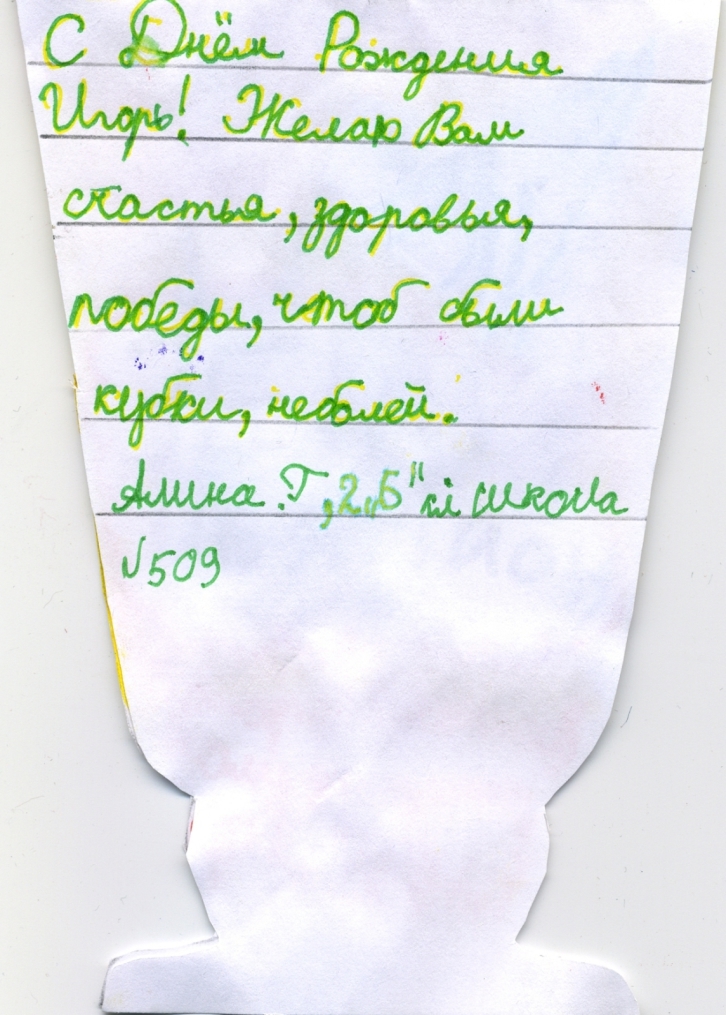 С Днём Рождения
Игорь! Желаю Вам
счастья, здоровья,
победы, чтоб были
кубки, необлей.
Алина.Г, 2 „Б" кл школа
№509